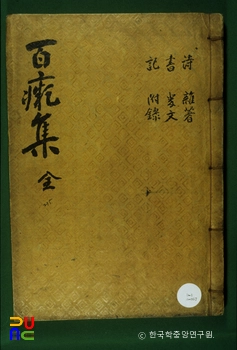 詩 雜著
書 祭文
記 附錄
百癡集 全
© 한국학중앙연구원